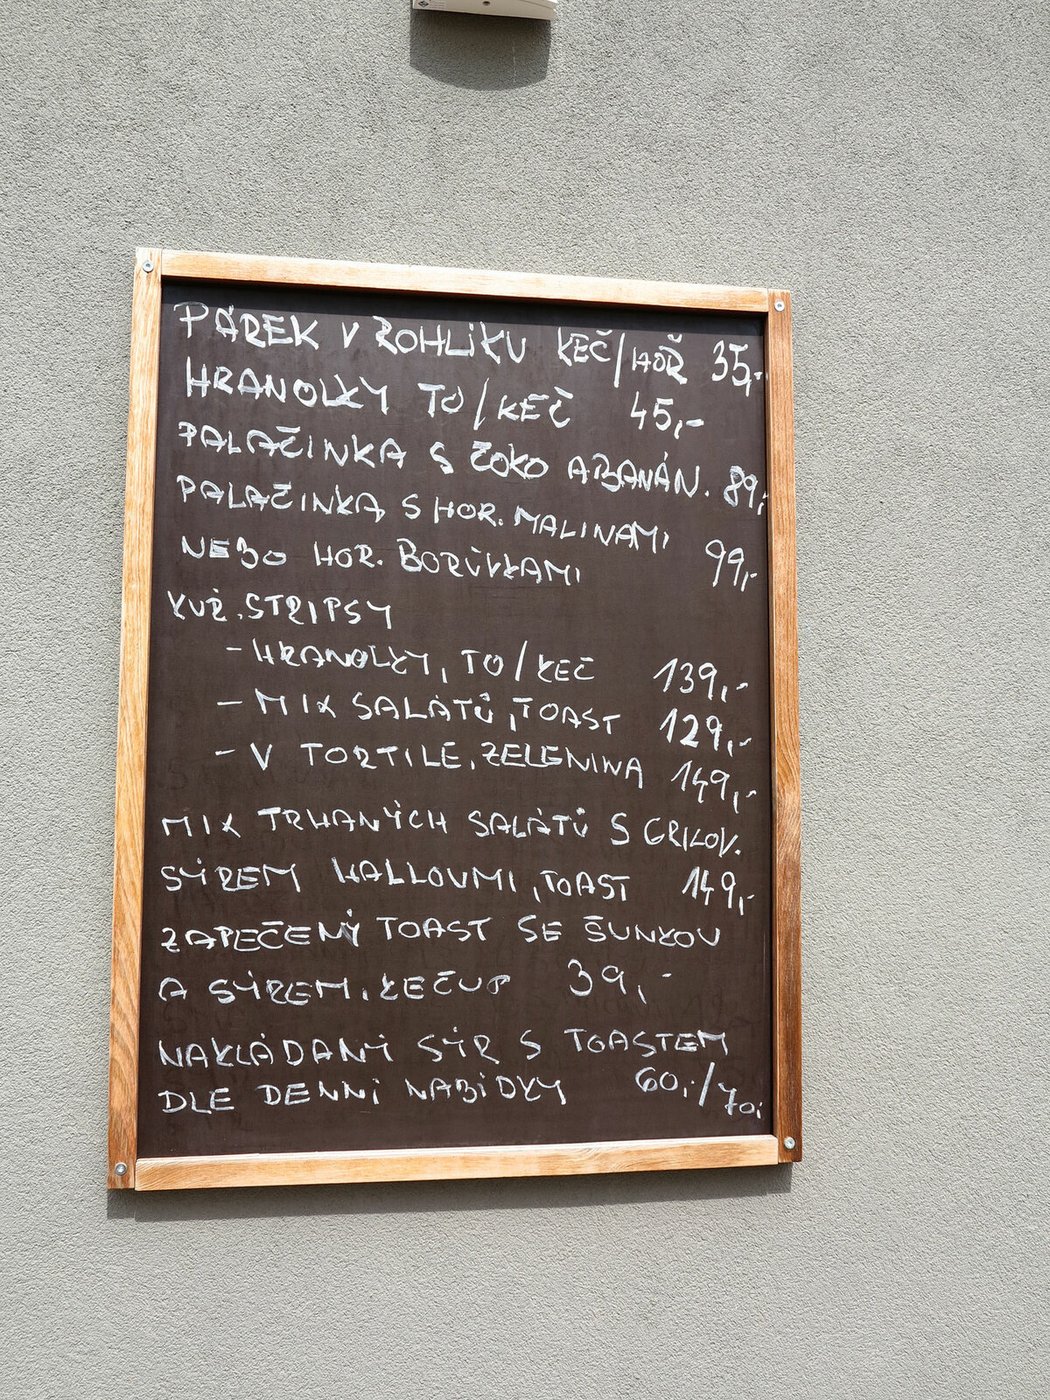 PÁREK V ROHLÍKU KEČ/HOŘ 35,-
HRANOLKY TO/KEČ 45,-
PALAČINKA S ČOKO A BANÁN. 89,-
PALAČINKA S HOR. MALINAMI
NEBO HOR. BORŮVKAMI 99,-
KUŘ. STRIPSY
- HRANOLKY, TO/KEČ 139,-
- MIX SALÁTŮ, TOAST 129,-
- V TORTILE, ZELENINA 149,-
MIX TRHANÝCH SALÁTŮ S GRILOV.
SÝREM HALLOUMI, TOAST 149,-
ZAPEČENÝ TOAST SE ŠUNKOU
A SÝREM, KEČUP 39,-
NAKLÁDANÝ SÝR S TOASTEM
DLE DENNÍ NABÍDKY 60,-/70,-